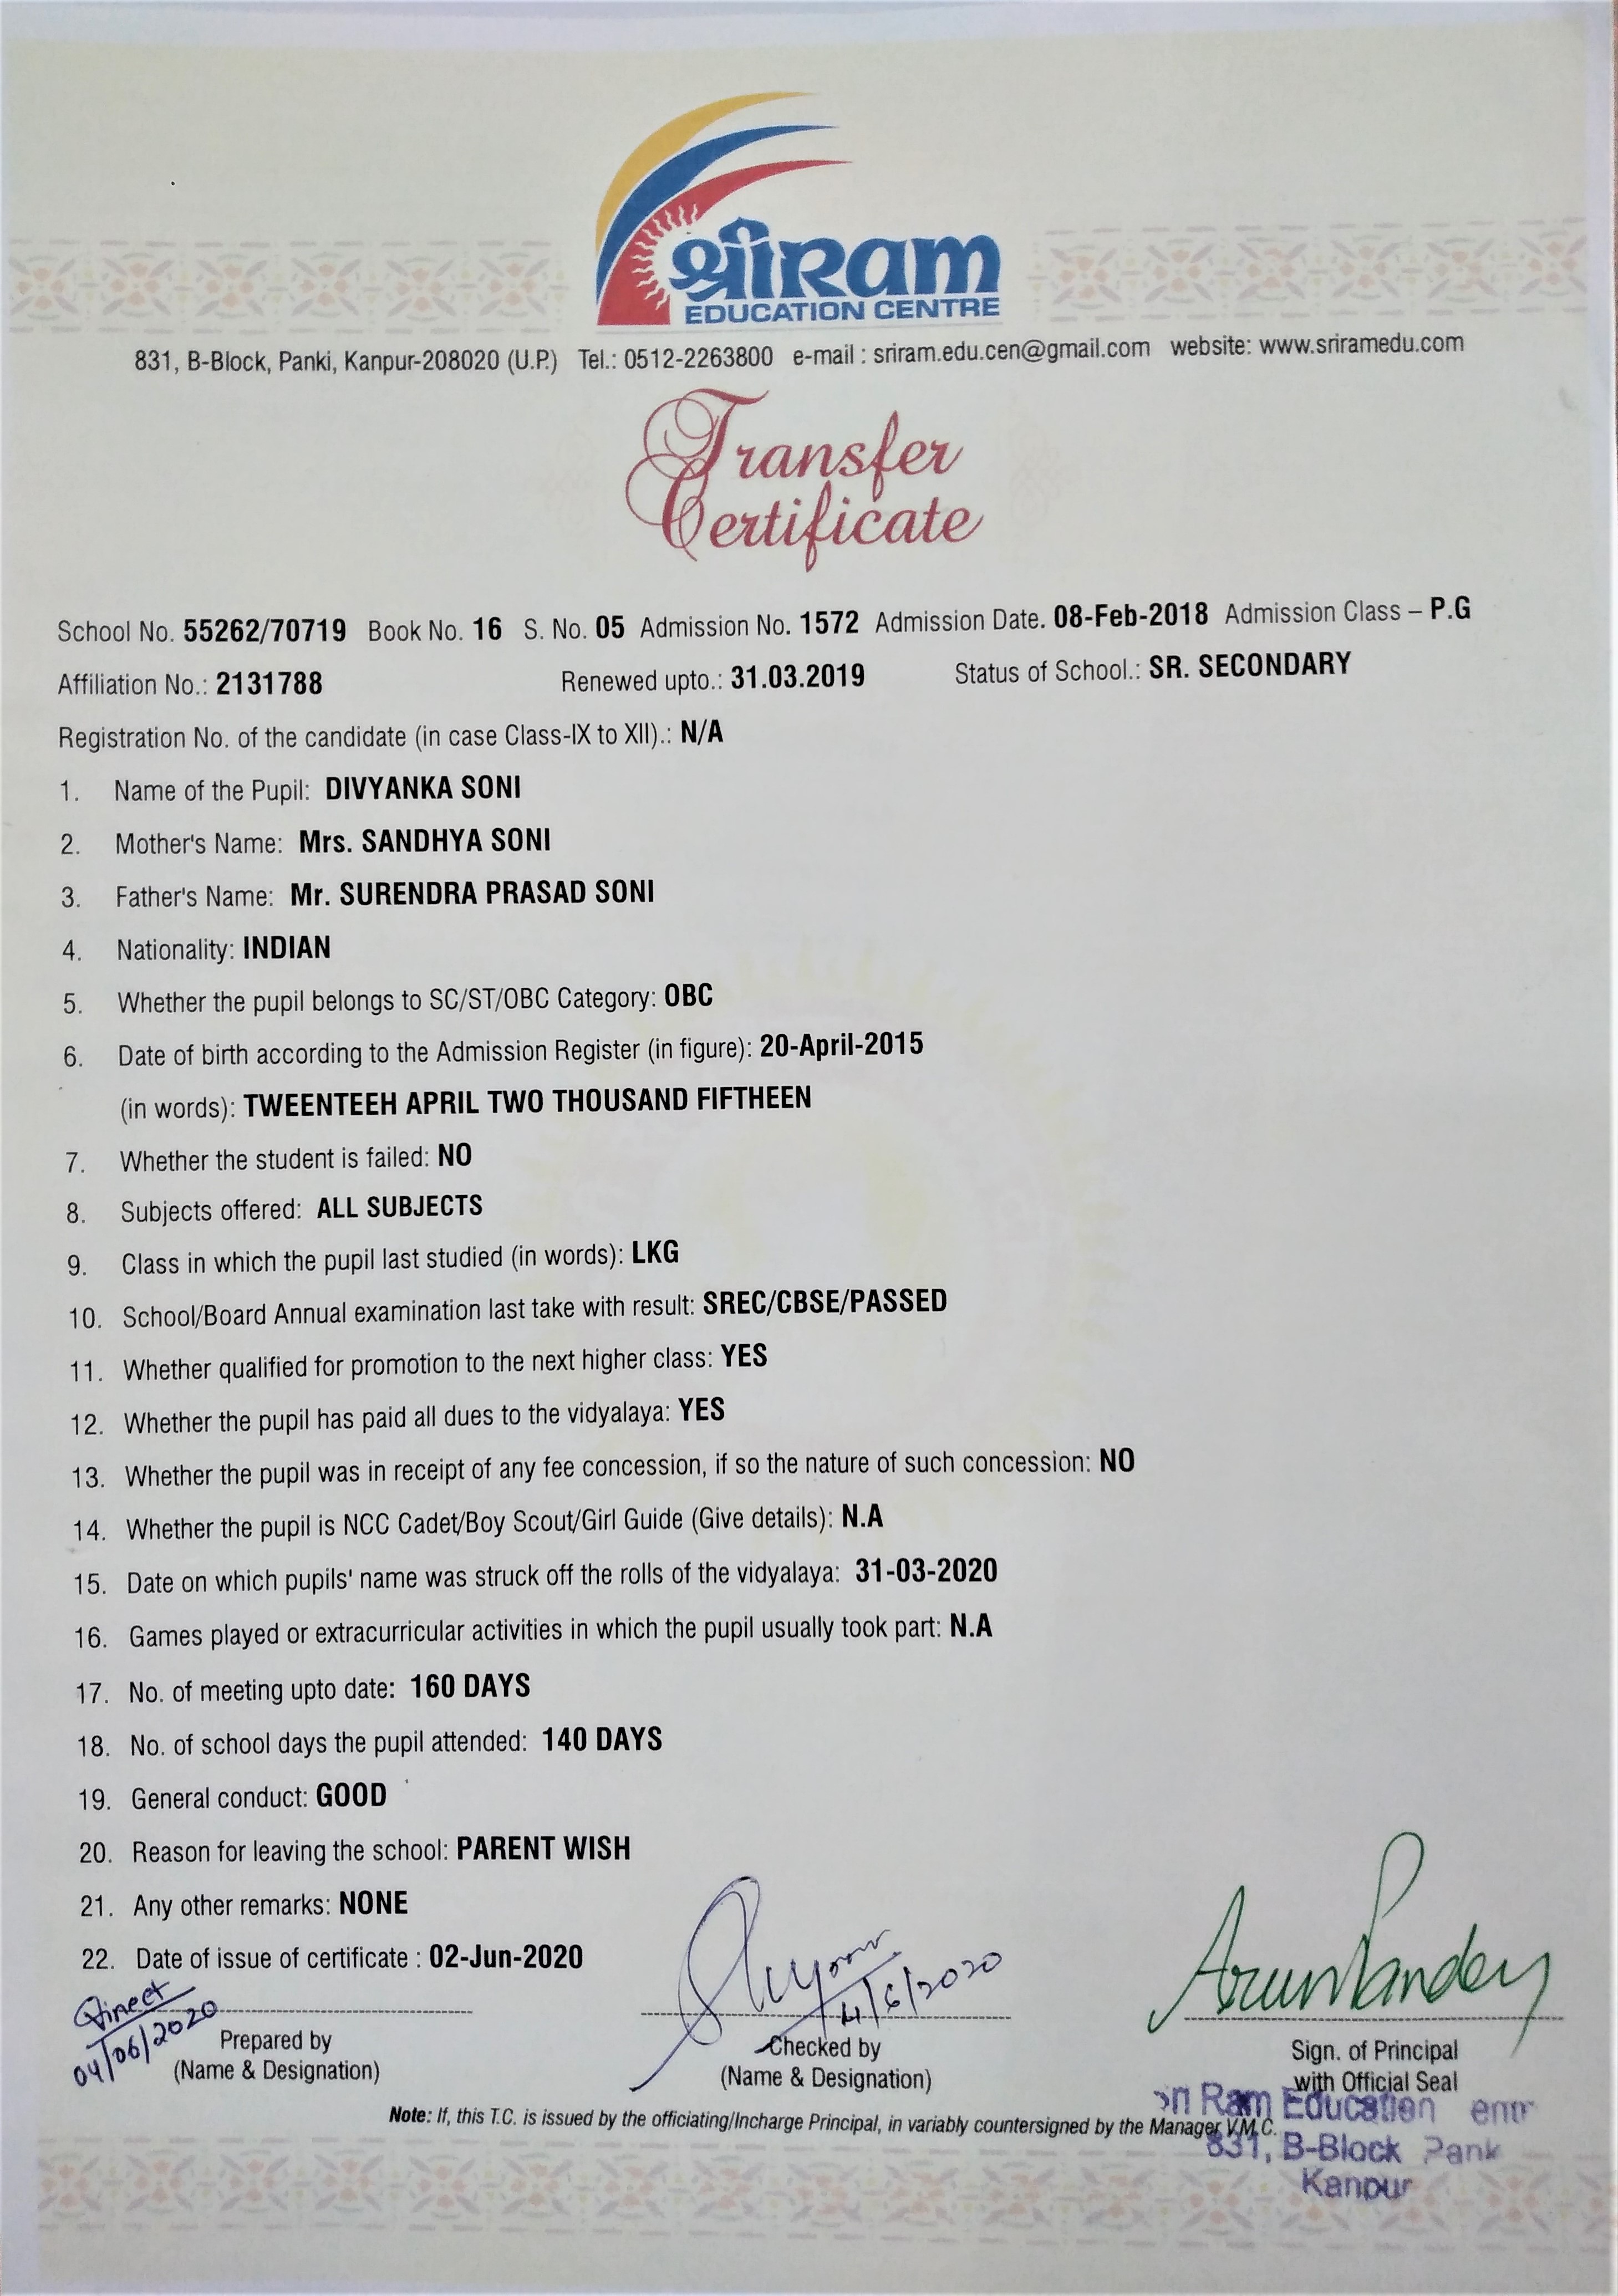 श्रीRAM
EDUCATION CENTRE
831, B-Block, Panki, Kanpur-208020 (U.P.) Tel.: 0512-2263800 e-mail : sriram.edu.cen@gmail.com website: www.sriramedu.com
Transfer
Certificate
School No. 55262/70719 Book No. 16 S. No. 05 Admission No. 1572 Admission Date. 08-Feb-2018 Admission Class – P.G
Affiliation No.: 2131788 Renewed upto.: 31.03.2019 Status of School.: SR. SECONDARY
Registration No. of the candidate (in case Class-IX to XII).: N/A
1. Name of the Pupil: DIVYANKA SONI
2. Mother's Name: Mrs. SANDHYA SONI
3. Father's Name: Mr. SURENDRA PRASAD SONI
4. Nationality: INDIAN
5. Whether the pupil belongs to SC/ST/OBC Category: OBC
6. Date of birth according to the Admission Register (in figure): 20-April-2015
(in words): TWEENTEEH APRIL TWO THOUSAND FIFTHEEN
7. Whether the student is failed: NO
8. Subjects offered: ALL SUBJECTS
9. Class in which the pupil last studied (in words): LKG
10. School/Board Annual examination last take with result: SREC/CBSE/PASSED
11. Whether qualified for promotion to the next higher class: YES
12. Whether the pupil has paid all dues to the vidyalaya: YES
13. Whether the pupil was in receipt of any fee concession, if so the nature of such concession: NO
14. Whether the pupil is NCC Cadet/Boy Scout/Girl Guide (Give details): N.A
15. Date on which pupils' name was struck off the rolls of the vidyalaya: 31-03-2020
16. Games played or extracurricular activities in which the pupil usually took part: N.A
17. No. of meeting upto date: 160 DAYS
18. No. of school days the pupil attended: 140 DAYS
19. General conduct: GOOD
20. Reason for leaving the school: PARENT WISH
21. Any other remarks: NONE
22. Date of issue of certificate : 02-Jun-2020
04/06/2020 4/6/2020 Arun Pandey
Prepared by Checked by Sign. of Principal
(Name & Designation) (Name & Designation) with Official Seal
Note: If, this T.C. is issued by the officiating/Incharge Principal, in variably countersigned by the Manager V.M.C.
Ram Education
831, B-Block
Kanpur